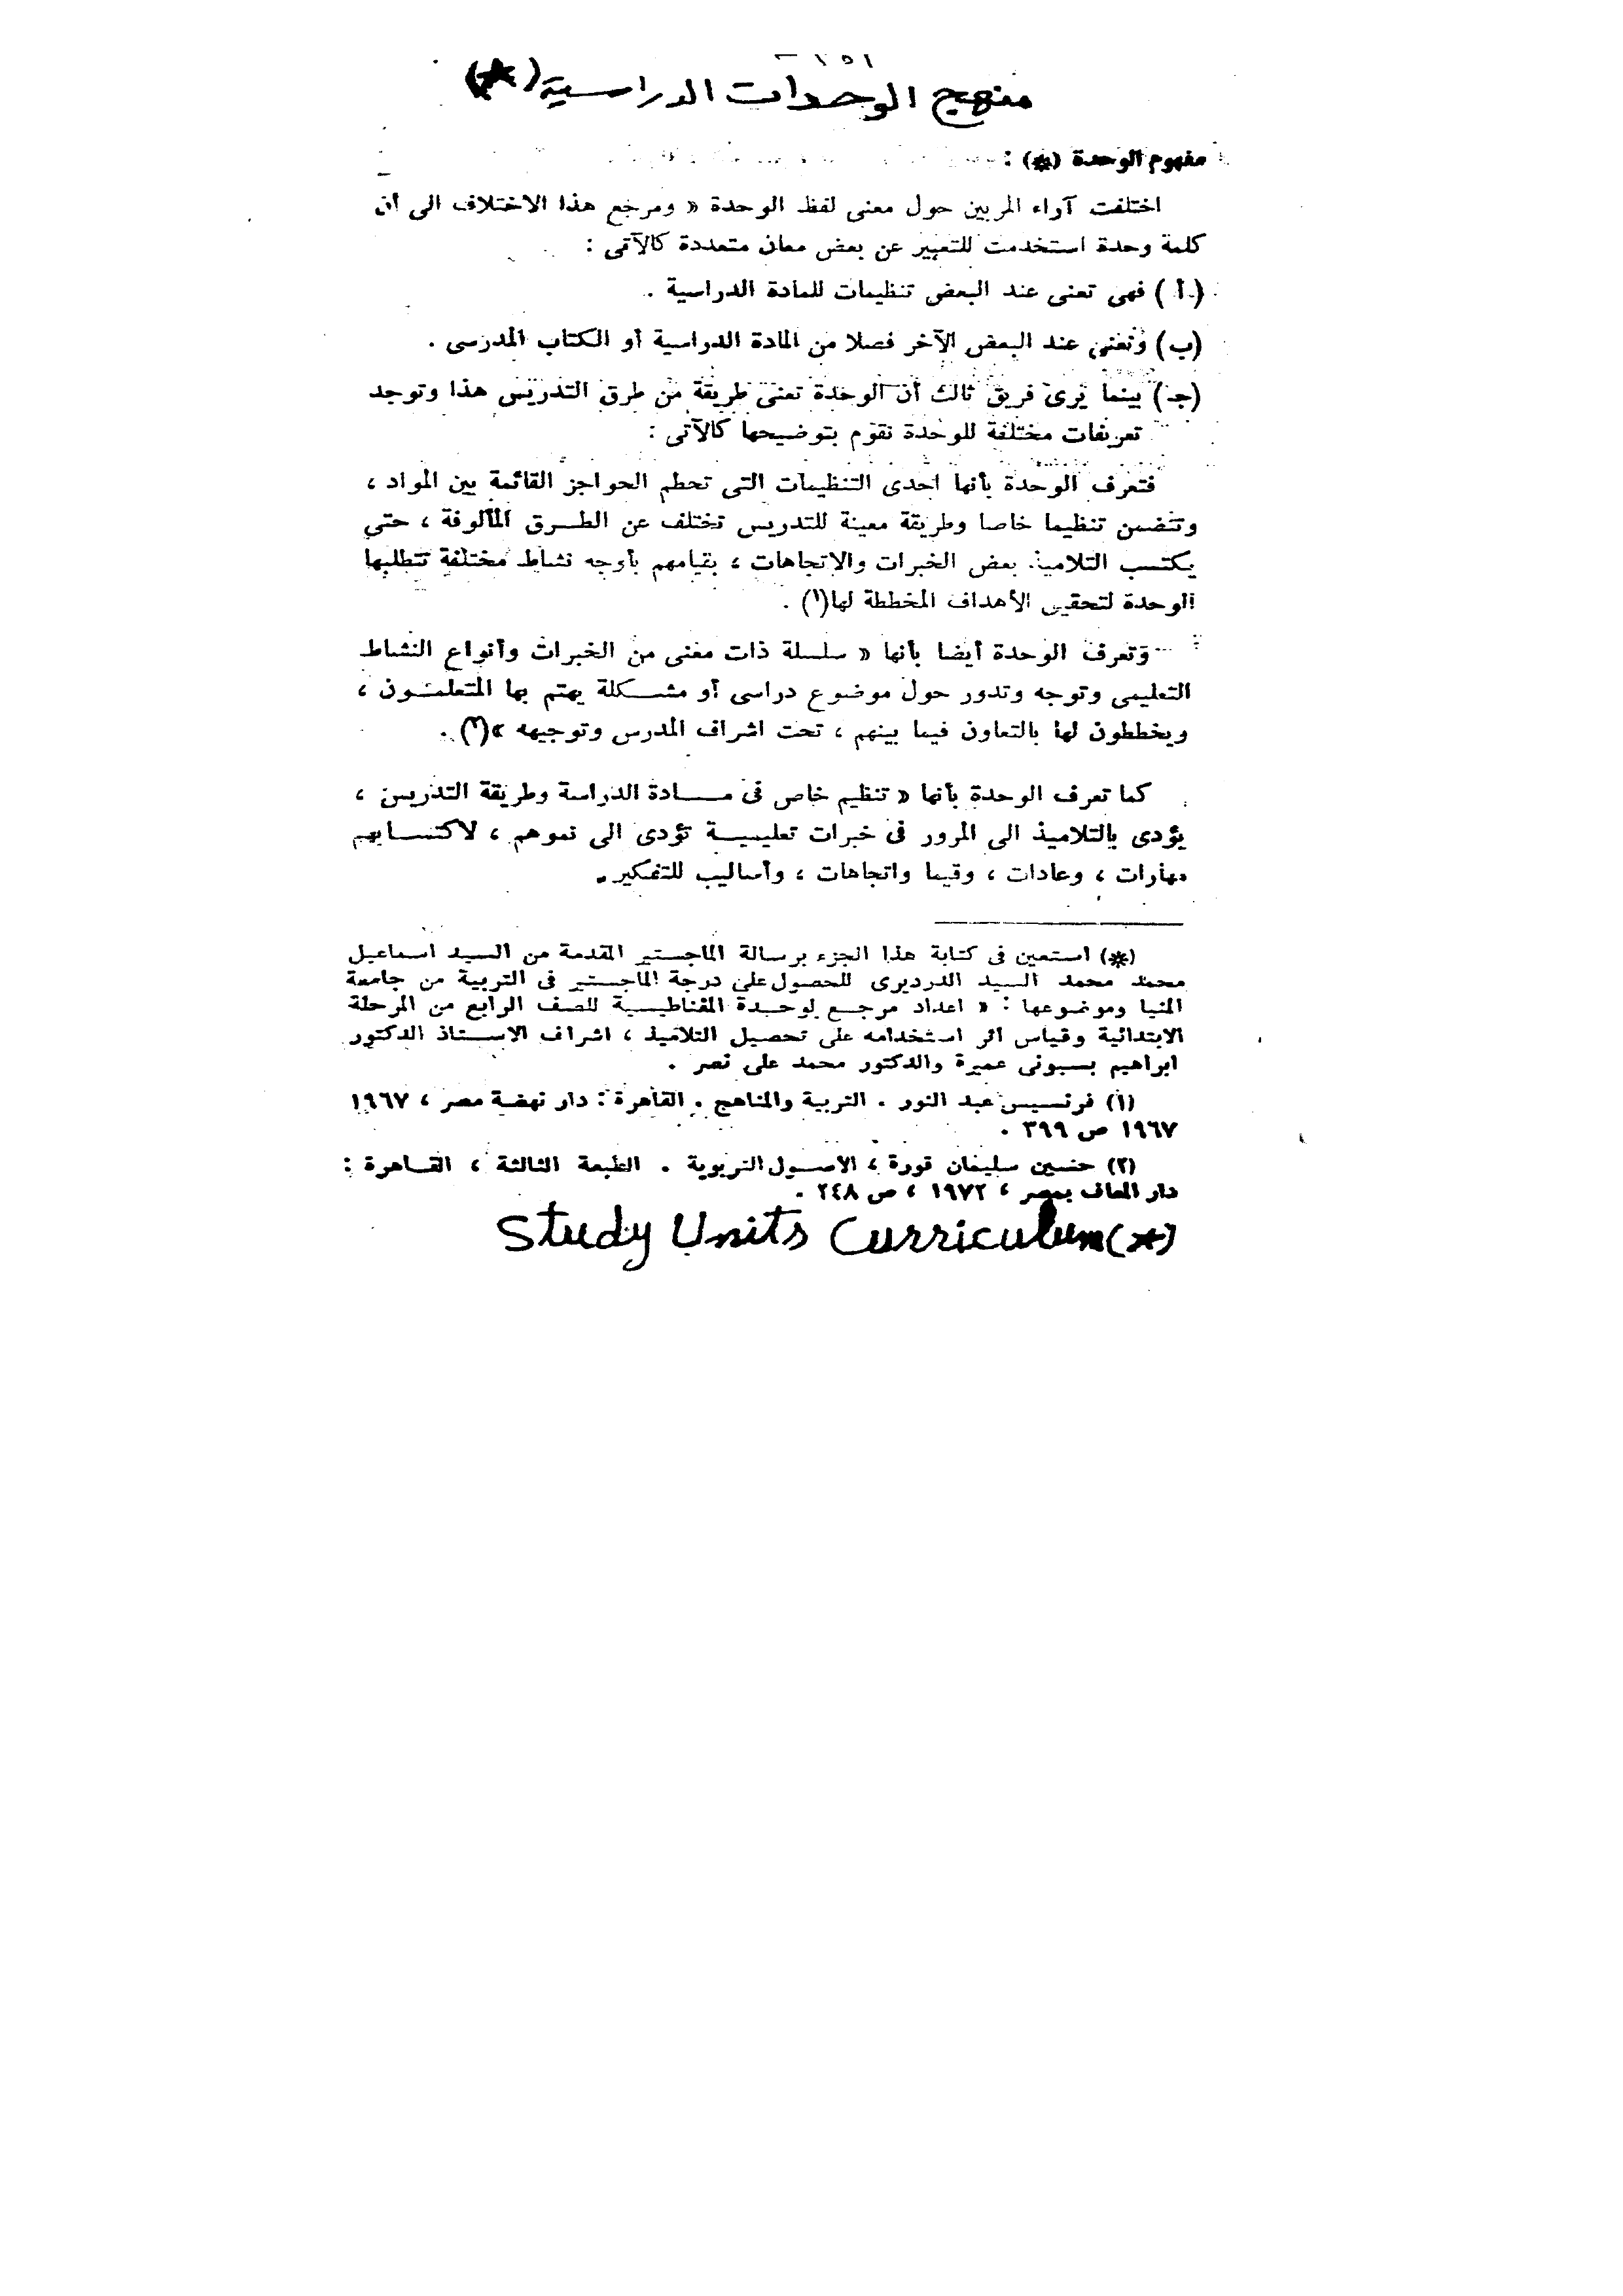 ١٥١ –
منهج الوحدات الدراسية (*)
مفهوم الوحدة (*) :
اختلفت آراء المربين حول معنى لفظ الوحدة « ومرجع هذا الاختلاف الى أن
كلمة وحدة استخدمت للتعبير عن بعض معان متعددة كالآتى :
( أ ) فهى تعنى عند البعض تنظيمات للمادة الدراسية .
(ب) وتعنى عند البعض الآخر فصلا من المادة الدراسية أو الكتاب المدرسى .
(جـ) بينما يرى فريق ثالث أن الوحدة تعنى طريقة من طرق التدريس هذا وتوجد
تعريفات مختلفة للوحدة نقوم بتوضيحها كالآتى :
فتعرف الوحدة بأنها احدى التنظيمات التى تحطم الحواجز القائمة بين المواد ،
وتتضمن تنظيما خاصا وطريقة معينة للتدريس تختلف عن الطــرق المألوفة ، حتى
يكتسب التلاميذ بعض الخبرات والاتجاهات ، بقيامهم بأوجه نشاط مختلفة تتطلبها
الوحدة لتحقيق الأهداف المخططة لها(١) .
وتعرف الوحدة أيضا بأنها « سلسلة ذات معنى من الخبرات وأنواع النشاط
التعليمى وتوجه وتدور حول موضوع دراسى أو مشــكلة يهتم بها المتعلمــون ،
ويخططون لها بالتعاون فيما بينهم ، تحت اشراف المدرس وتوجيهه »(٢) .
كما تعرف الوحدة بأنها « تنظيم خاص فى مـــادة الدراسة وطريقة التدريس ،
يؤدى بالتلاميذ الى المرور فى خبرات تعليميــة تؤدى الى نموهم ، لاكتســابهم
مهارات ، وعادات ، وقيما واتجاهات ، وأساليب للتفكير .
(*) استعين فى كتابة هذا الجزء برسالة الماجستير المقدمة من السيد اسماعيل
محمد محمد السيد الدرديرى للحصول على درجة الماجستير فى التربية من جامعة
المنيا وموضوعها : « اعداد مرجــع لوحــدة المغناطيسية للصف الرابع من المرحلة
الابتدائية وقياس أثر استخدامه على تحصيل التلاميذ ، اشراف الاســتاذ الدكتور
ابراهيم بسيونى عميرة والدكتور محمد على نصر .
(١) فرنسيس عبد النور . التربية والمناهج . القاهرة : دار نهضة مصر ، ١٩٦٧
١٩٦٧ ص ٣٩٩ .
(٢) حسين سليمان قورة ، الاصــول التربوية . الطبعة الثالثة ، القــاهرة :
دار المعاف بمصر ، ١٩٧٢ ، ص ٢٤٨ .
Study Units Curriculum (*)